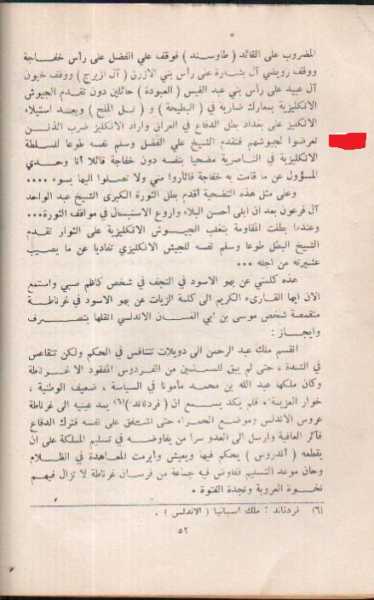 المضروب على القائد ( طاوسند ) فوقف علي الفضل على رأس خفاجة
ووقف رويضي آل بشارة على رأس بني الازرق ( آل ازيرج ) ووقف خيون
آل عبيد على رأس بني عبد القيس ( العبودة ) حائلين دون تقدم الجيوش
الانكليزية بمعارك ضارية في ( البطيحة ) و ( تل الملح ) وبعد استيلاء
الانكليز على بغداد بطل الدفاع في العراق واراد الانكليز ضرب الذين
تعرضوا لجيوشهم فتقدم الشيخ علي الفضل وسلم نفسه طوعا للسلطة
الانكليزية في الناصرية مضحيا بنفسه دون خفاجة قائلا أنا وحدي
المسؤول عن ما قامت به خفاجة فاثأروا مني ولا تصلوا اليها بسوء ....
وعلى مثل هذه التضحية أقدم بطل الثورة الكبرى الشيخ عبد الواحد
آل فرعون بعد ان ابلى أحسن البلاء واروع الاستبسال في مواقف الثورة...
وعندما بطلت المقاومة بتغلب الجيوش الانكليزية على الثوار تقدم
الشيخ البطل طوعا وسلم نفسه للجيش الانكليزي تفاديا عن ما يصيب
عشيرته من اجله ...
هذه كلمتي عن بهو الاسود في النجف في شخص كاظم صبي واستمع
الان ايها القارىء الكريم الى كلمة الزيات عن بهو الاسود في غرناطة
متقمصة شخص موسى بن ابي الغسان الاندلسي انقلها بتصرف
وايجاز :
انقسم ملك عبد الرحمن الى دويلات تتنافس في الحكم ولكن تتقاعس
في الشدة ، حتى لم يبق للمسلمين من الفردوس المفقود الا غرناطة
وكان ملكها عبد الله بن محمد مأفونا في السياسة ، ضعيف الوطنية ،
خوار العزيمة، فلم يكد يسمع ان ( فردناند )(٦) يمد عينيه الى غرناطة
عروس الاندلس وموضع الحمراء حتى اشتفق على نفسه فترك الدفاع
فآثر العافية وارسل الى العدو سرا من يفاوضه في تسليم المملكة على ان
يقطعه ( أندروس ) يحكم فيها ويعيش وأبرمت المعاهدة في الظلام
وحان موعد التسليم ففاوض فيه جماعة من فرسان غرناطة لا تزال فيهم
نخوة العروبة ونجدة الفتوة .
(٦) فردناند : ملك اسبانيا ( الاندلس ) .
٥٢